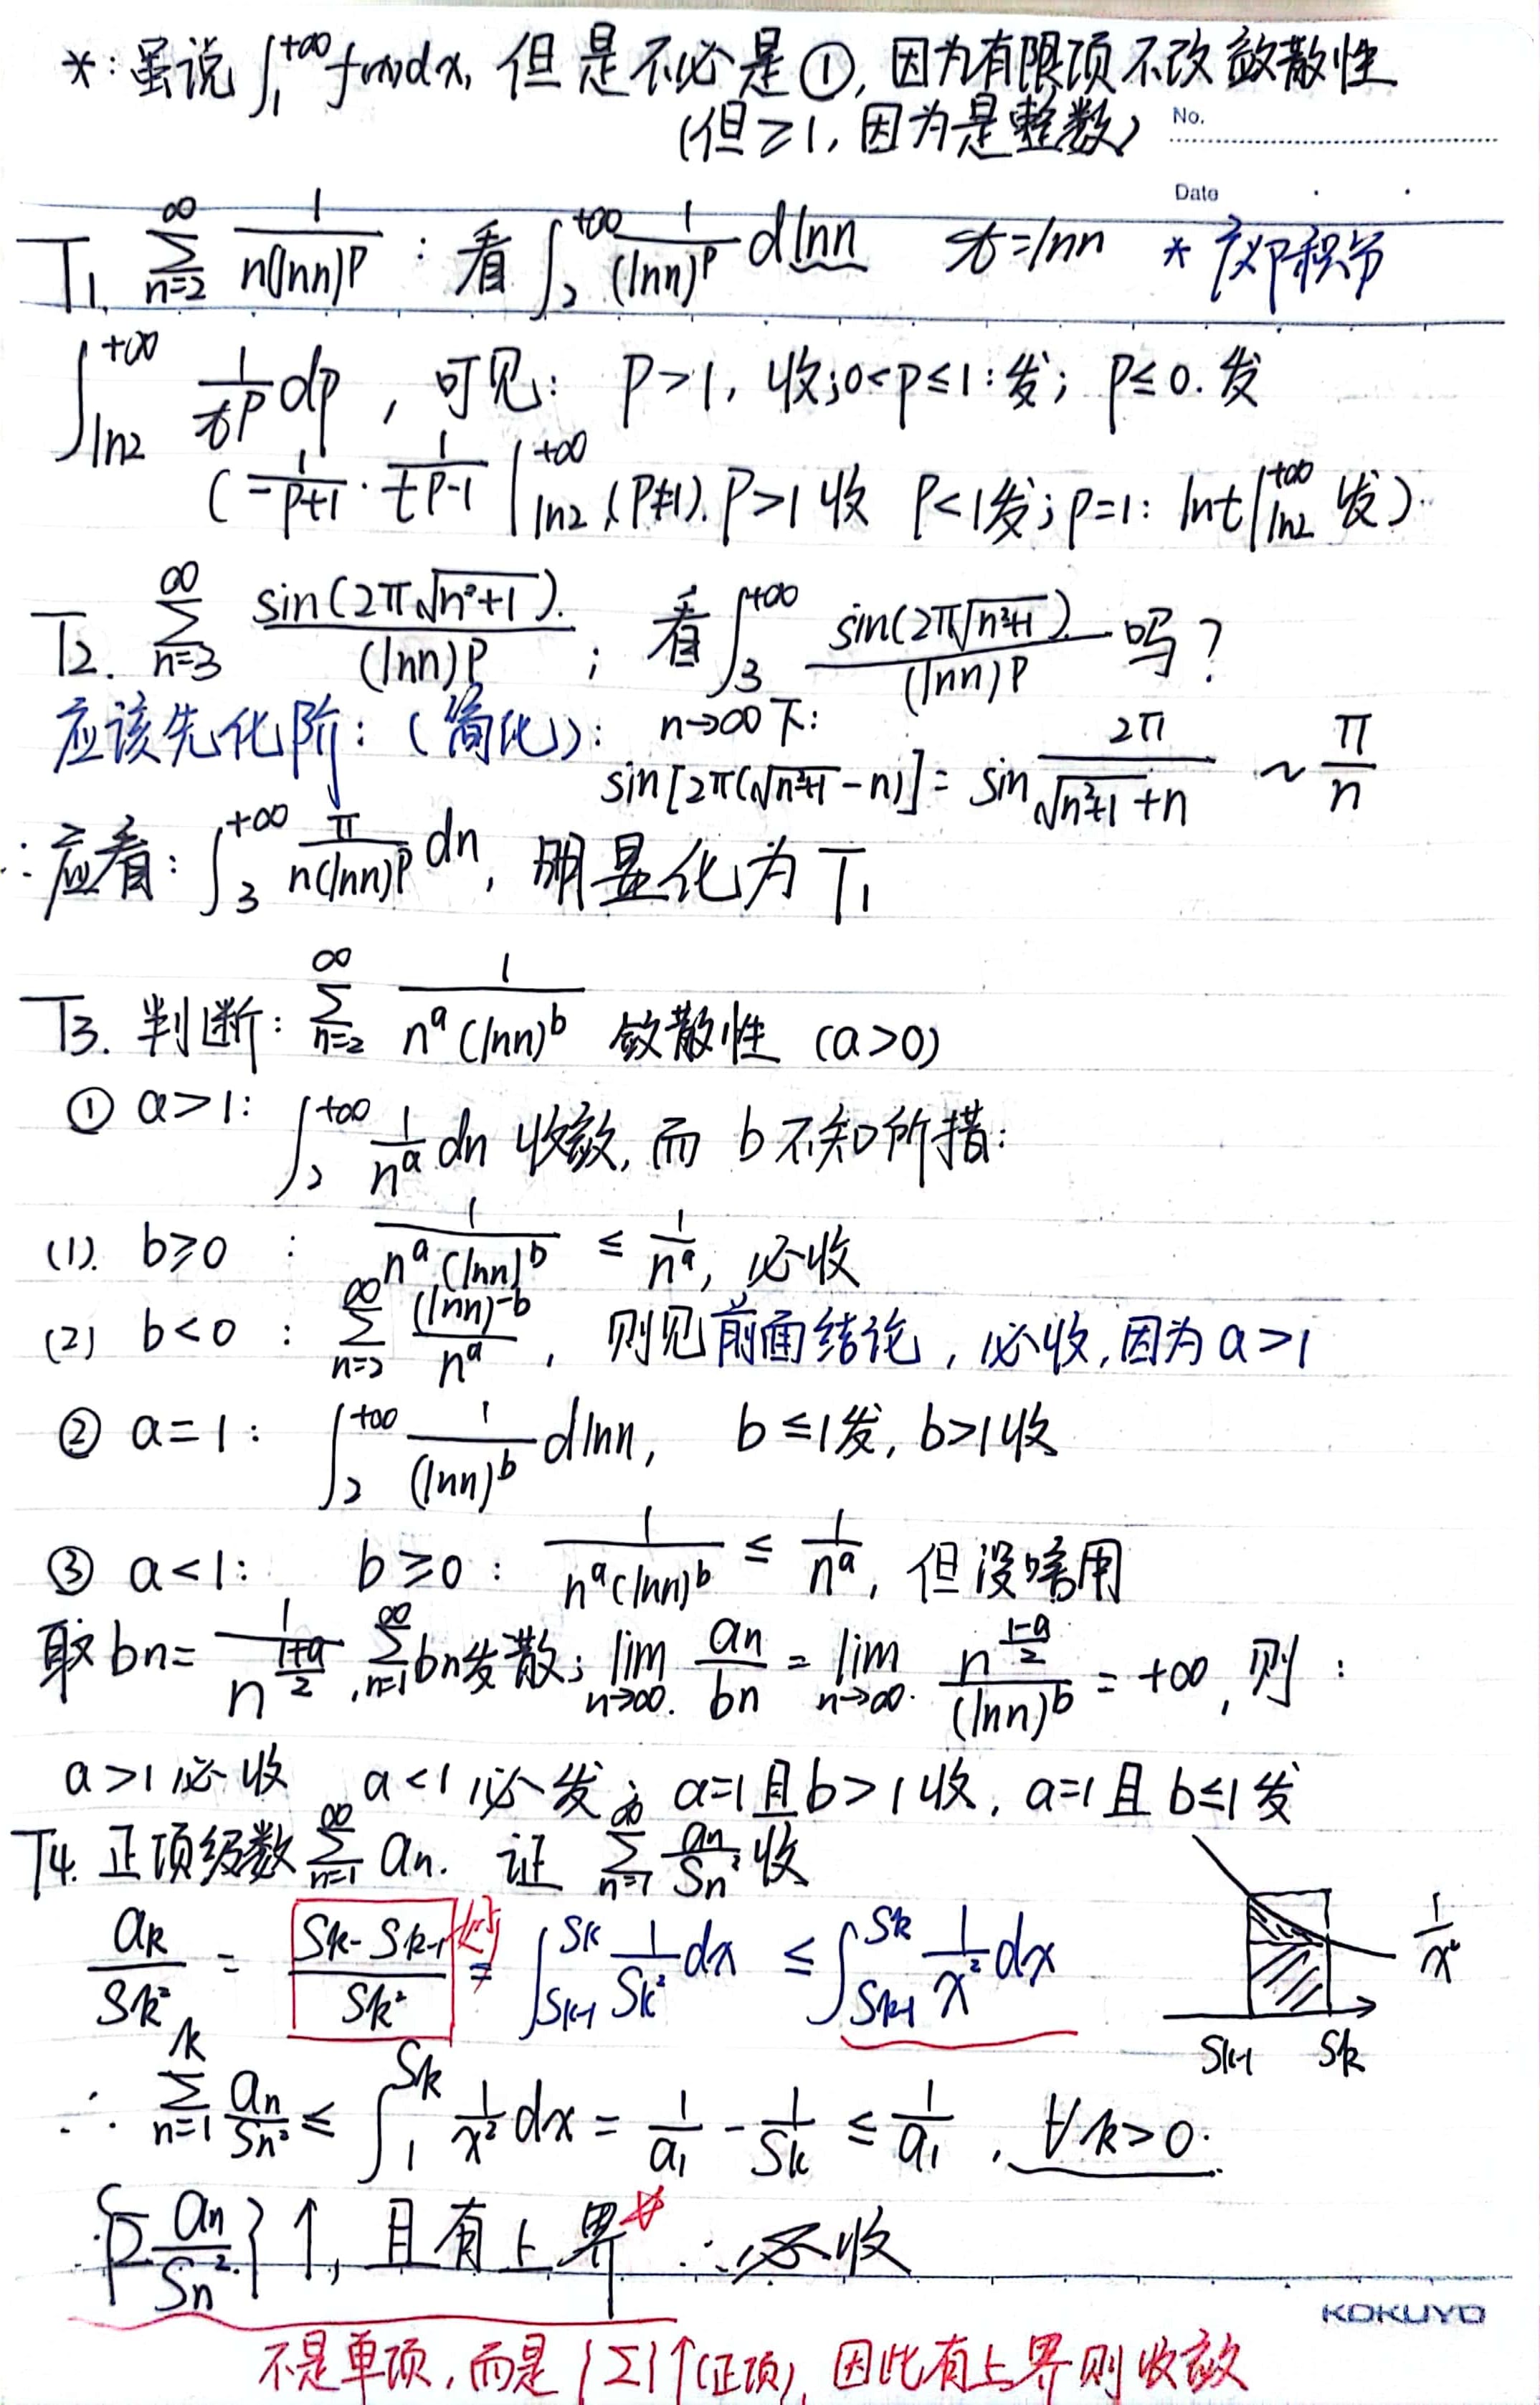 *: 虽说 ∫₁^{+∞} f(x)dx, 但是不必是①, 因为有限项不改敛散性
(但≥1, 因为是整数)
No.
Date
T1. ∑_{n=2}^{∞} 1/(n(lnn)^p) : 看 ∫₂^{+∞} 1/(lnn)^p dlnn t=lnn * 广义积分
∫_{ln2}^{+∞} 1/t^p dp , 可见: p>1, 收; 0<p≤1: 发; p≤0. 发
(1/(-p+1) · 1/t^{p-1} |_{ln2}^{+∞}, (p≠1). p>1收 p<1发; p=1: lnt|_{ln2}^{+∞} 发).
T2. ∑_{n=3}^{∞} sin(2π√(n²+1))/(lnn)^p ; 看 ∫₃^{+∞} sin(2π√(n²+1))/(lnn)^p 吗?
应该先化阶: (简化): n→∞下:
sin[2π(√(n²+1)-n)] = sin 2π/(√(n²+1)+n) ~ π/n
∴应看: ∫₃^{+∞} π/(n(lnn)^p) dn, 明显化为T1
T3. 判断: ∑_{n=2}^{∞} 1/(n^a (lnn)^b) 敛散性 (a>0)
① a>1: ∫₂^{+∞} 1/n^a dn 收敛, 而 b 不知所措:
(1). b≥0 : 1/(n^a (lnn)^b) ≤ 1/n^a, 必收
(2) b<0 : ∑_{n=2}^{∞} (lnn)^{-b}/n^a , 则见前面结论, 必收, 因为a>1
② a=1: ∫₂^{+∞} 1/(lnn)^b dlnn, b≤1发, b>1收
③ a<1: b≥0: 1/(n^a(lnn)^b) ≤ 1/n^a, 但没啥用
取 bn= 1/n^{(1+a)/2}, ∑_{n=1}^{∞} bn发散; lim_{n→∞} an/bn = lim_{n→∞} n^{(1-a)/2}/(lnn)^b = +∞, 则:
a>1必收 a<1必发; a=1且b>1收, a=1且b≤1发
T4. 正项级数 ∑_{n=1}^{∞} an. 证 ∑_{n=1}^{∞} an/Sn² 收
ak/Sk² = (Sk-Sk-1)/Sk² = ∫_{Sk-1}^{Sk} 1/Sk² dx ≤ ∫_{Sk-1}^{Sk} 1/x² dx
1/x²
Sk-1 Sk
∴ ∑_{n=1}^{k} an/Sn² ≤ ∫₁^{Sk} 1/x² dx = 1/a₁ - 1/Sk ≤ 1/a₁ , ∀k>0.
{∑ an/Sn²}↑, 且有上界 ∴必收
KOKUYO
不是单项, 而是{∑}↑(正项), 因此有上界则收敛